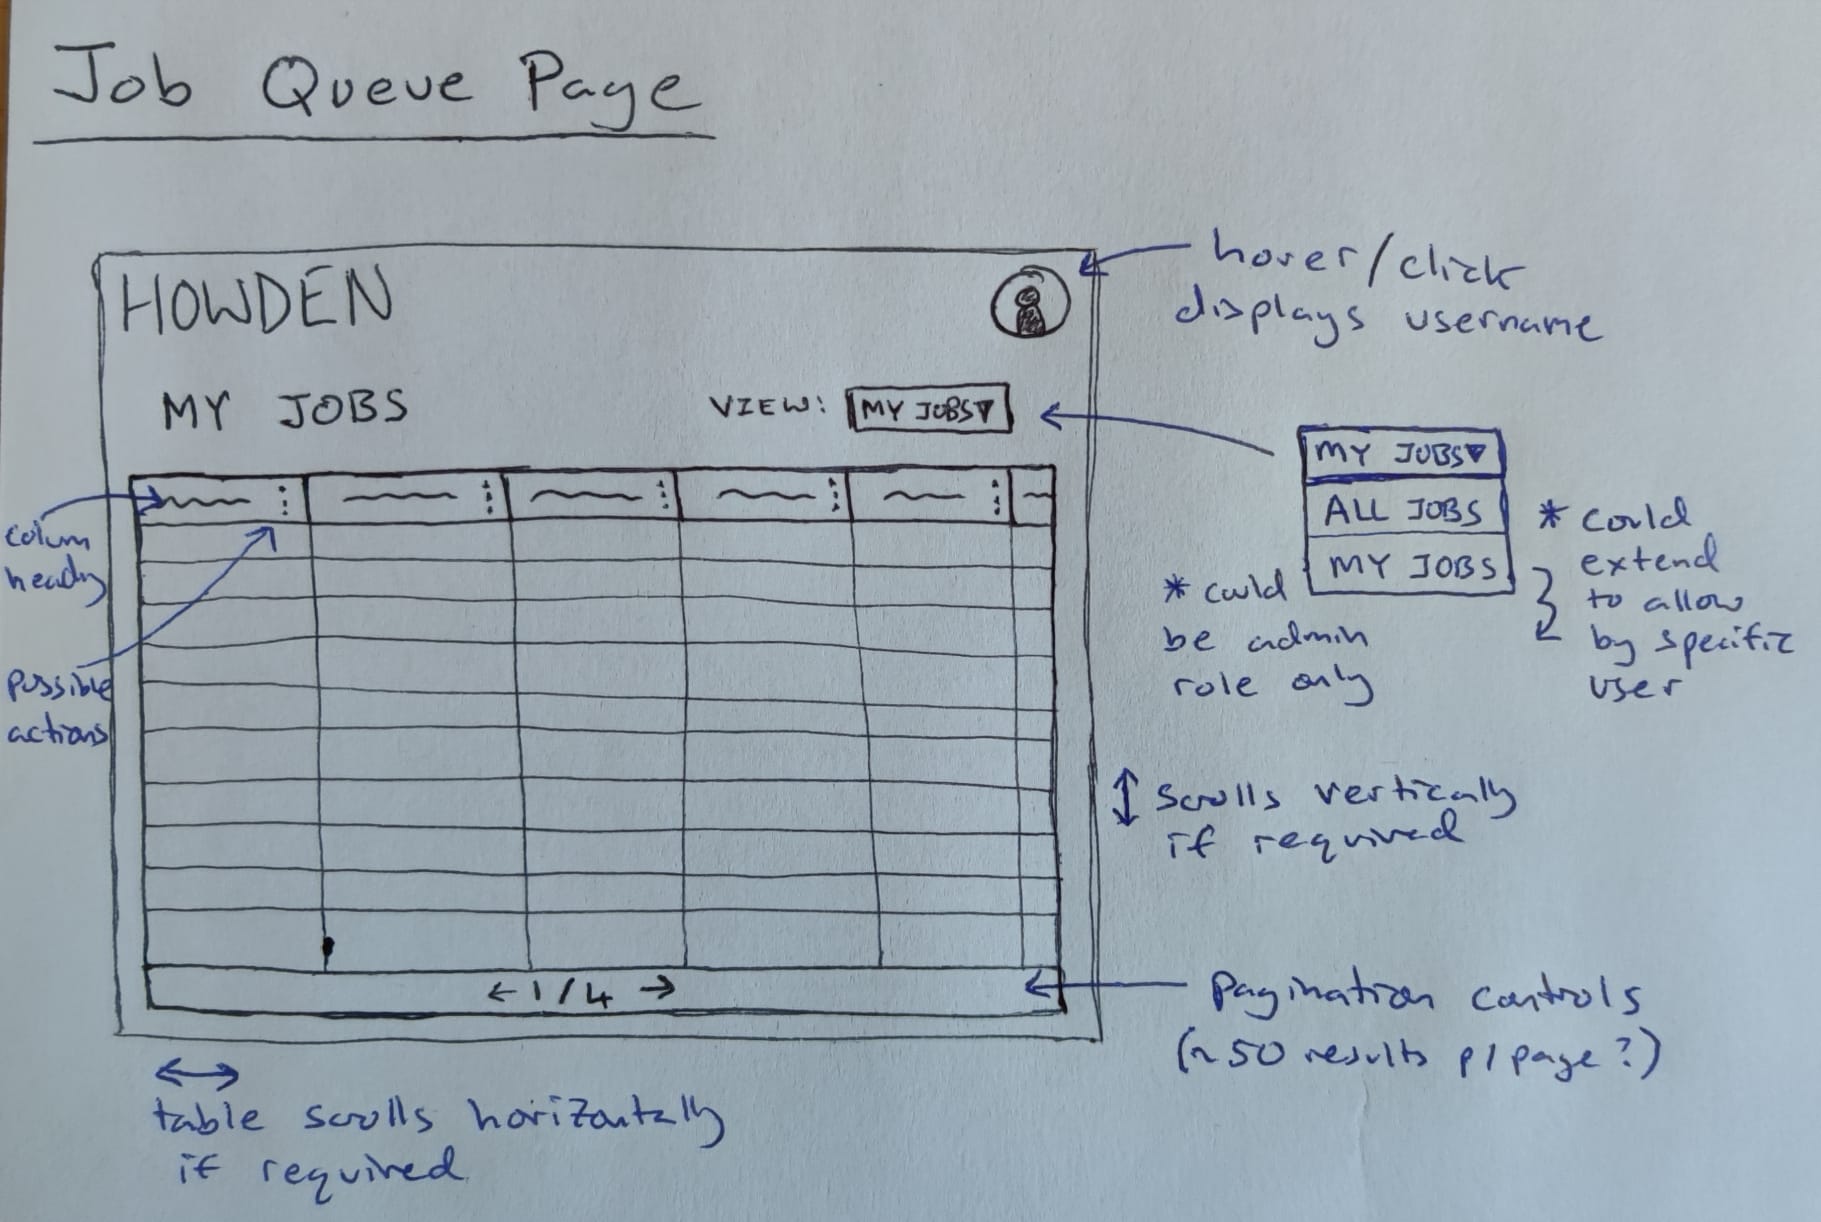 Job Queue Page
HOWDEN
hover/click
displays username
MY JOBS
VIEW: MY JOBS▾
MY JOBS▾
ALL JOBS
MY JOBS
* could
be admin
role only
* could
extend
to allow
by specific
user
colum
heady
possible
actions
↕ scrolls vertically
if required
← 1/4 →
pagination controls
(~50 results p/page?)
↔
table scrolls horizontally
if required